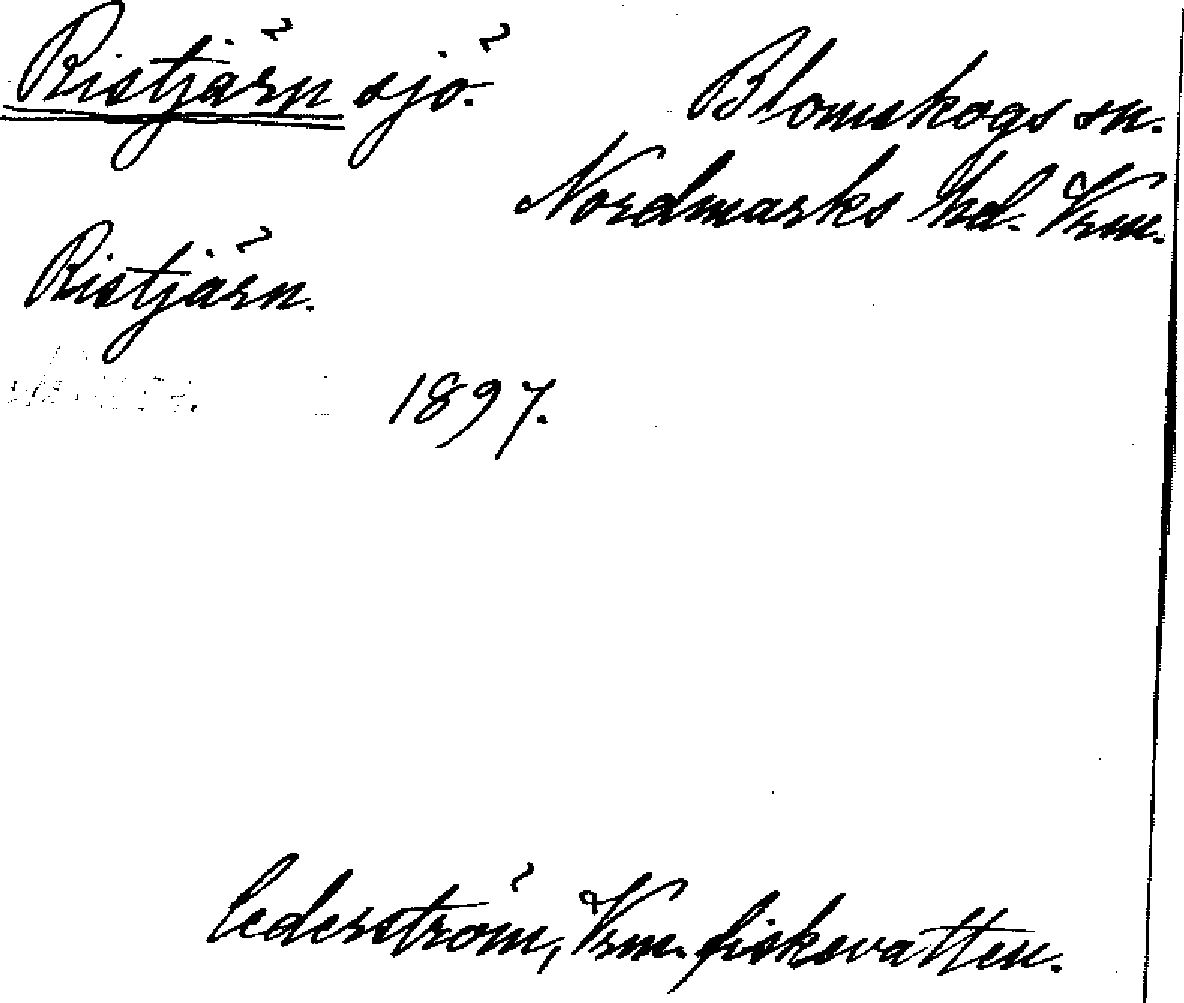 Ristjärn sjö.
Blomskogs sn.
Nordmarks hd. Vrm.
Ristjärn.
1897.
Cederström, Vrm. fiskevatten.